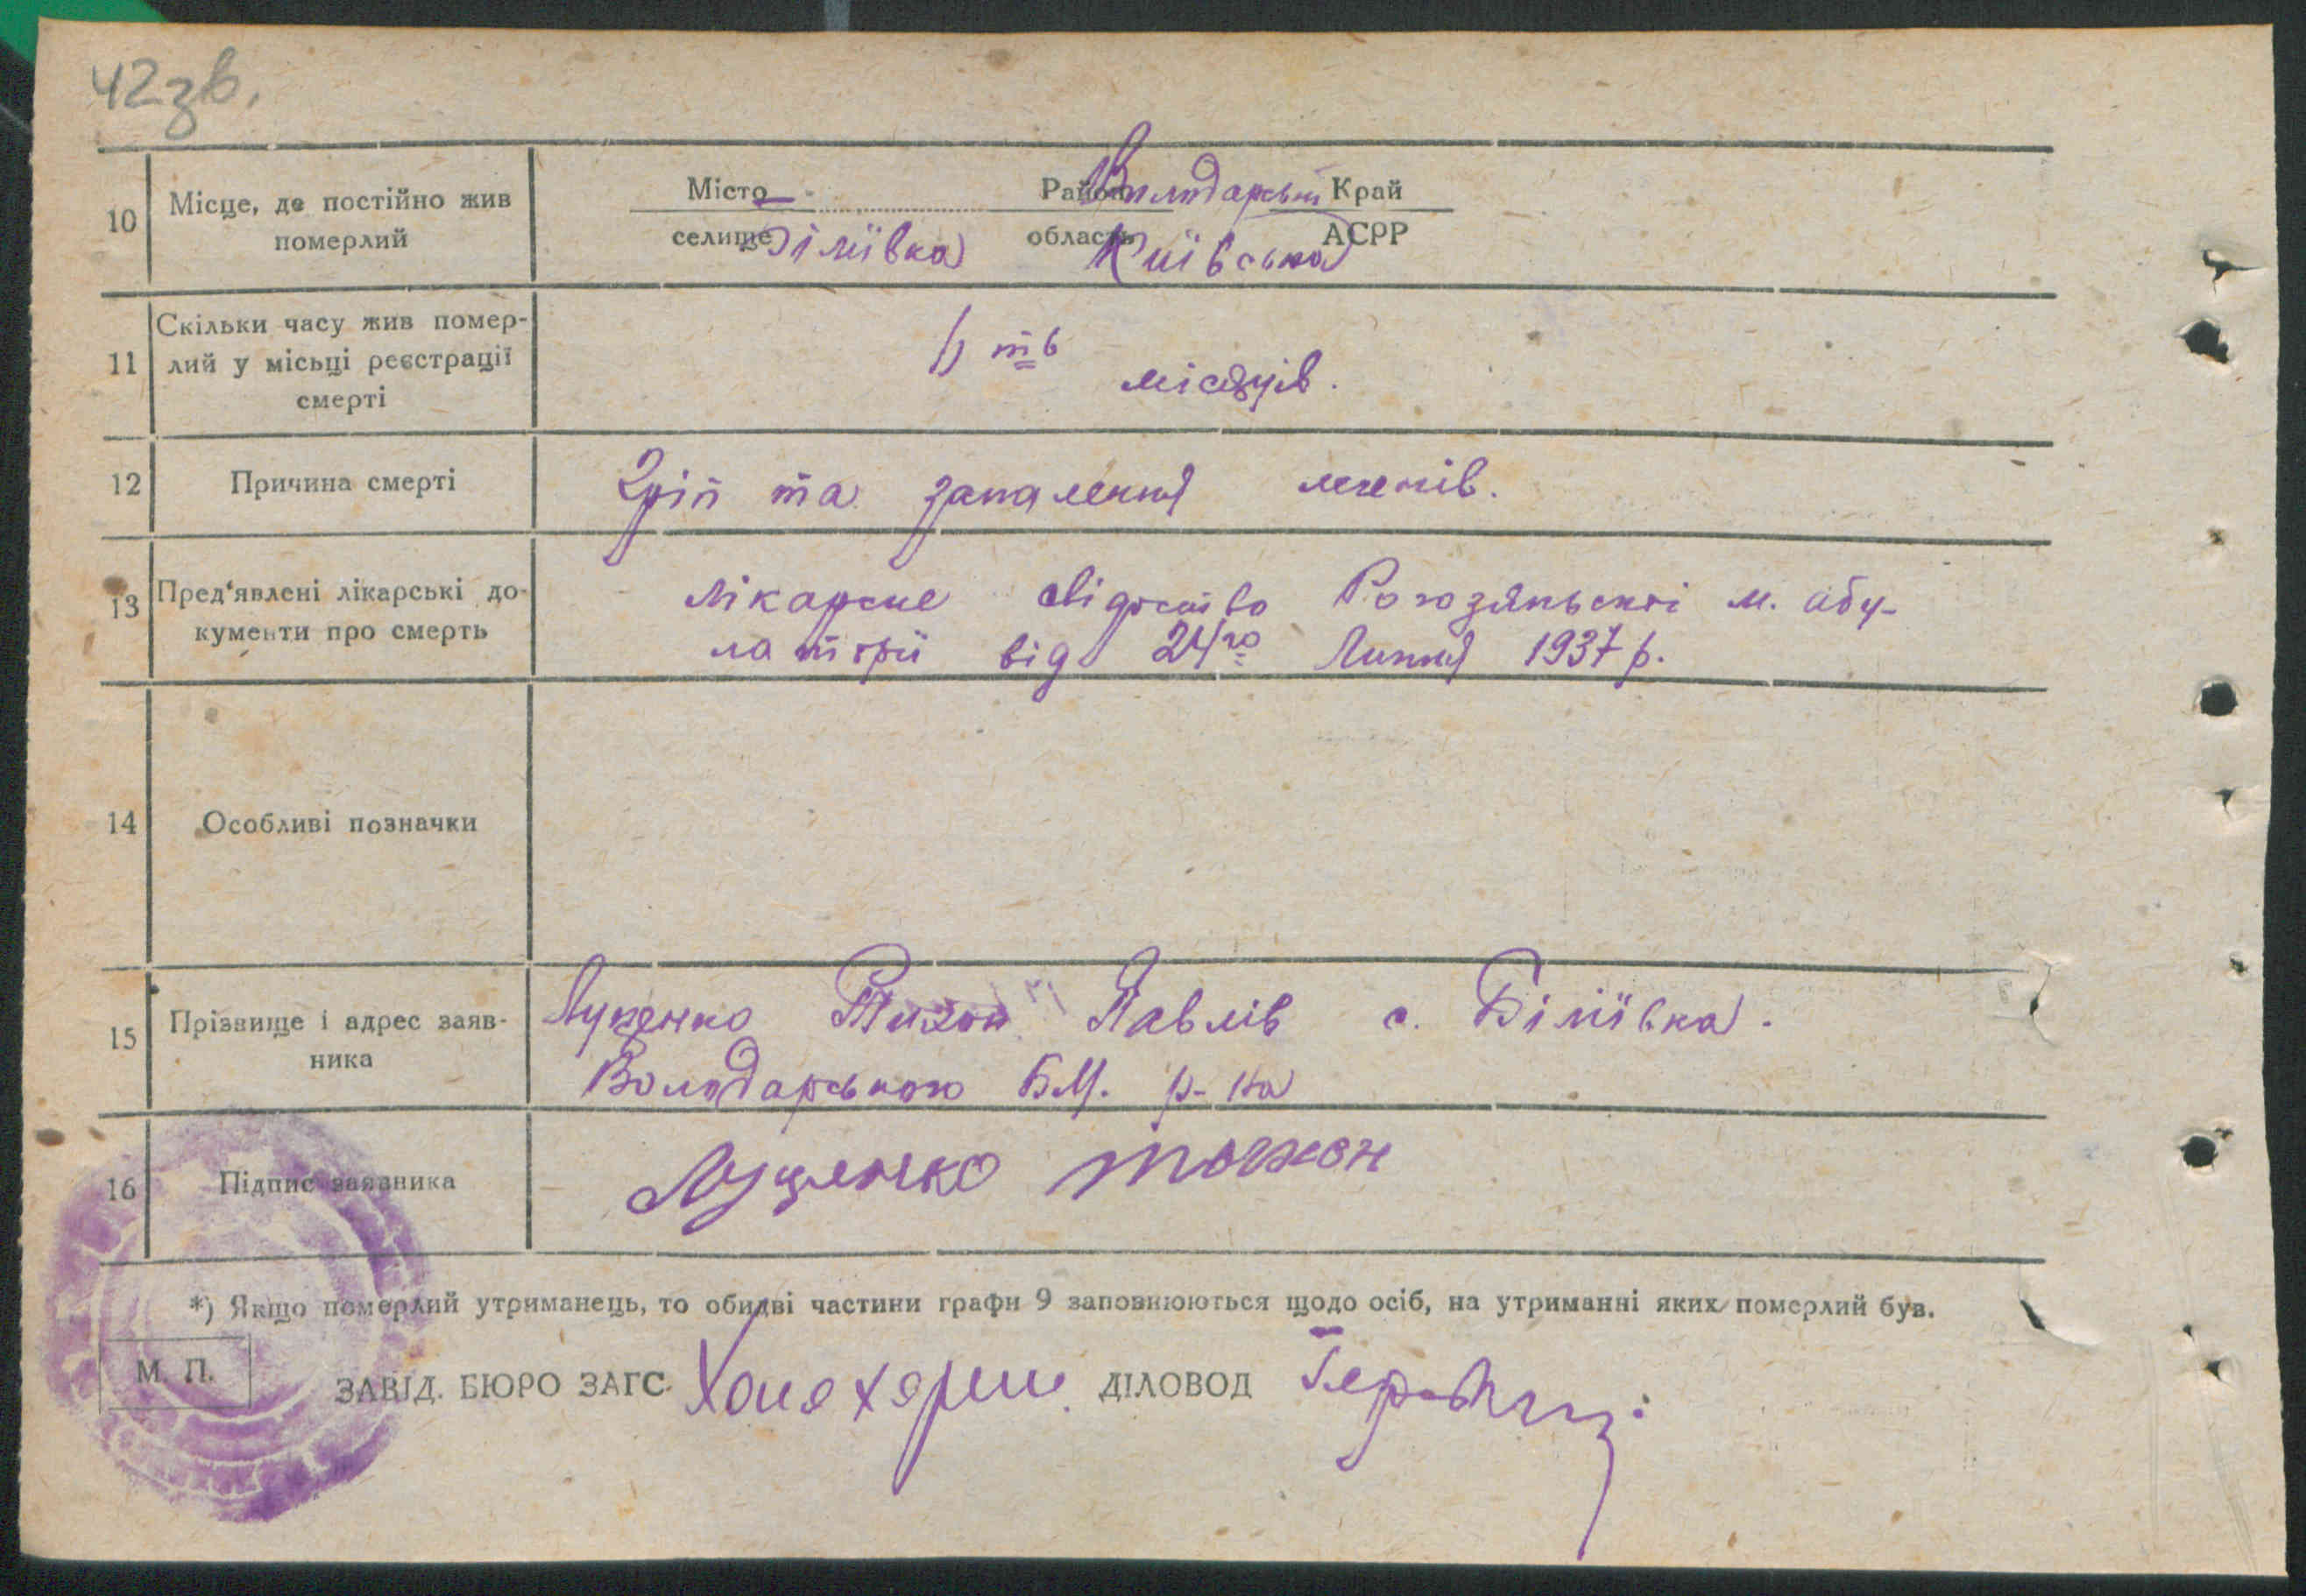 42зв.
10 Місце, де постійно жив померлий
Місто — Район Володарськ Край
селище Біліївка область Київська АСРР
11 Скільки часу жив помер-
лий у місьці реєстрації
смерті
місяців.
12 Причина смерті Гріп та запалення легенів.
13 Пред'явлені лікарські до-
кументи про смерть
лікарске свідоство м. абу-
латорії від 24го Липня 1937 р.
14 Особливі позначки
15 Прізвище і адрес заяв-
ника
Луценко Тихон Павлів с. Біліївка.
Володарського БМ. р-на
16 Підпис заявника Луценко
*) Якщо померлий утриманець, то обидві частини графи 9 заповнюються щодо осіб, на утриманні яких померлий був.
М. П.
ЗАВІД. БЮРО ЗАГС. ДІЛОВОД